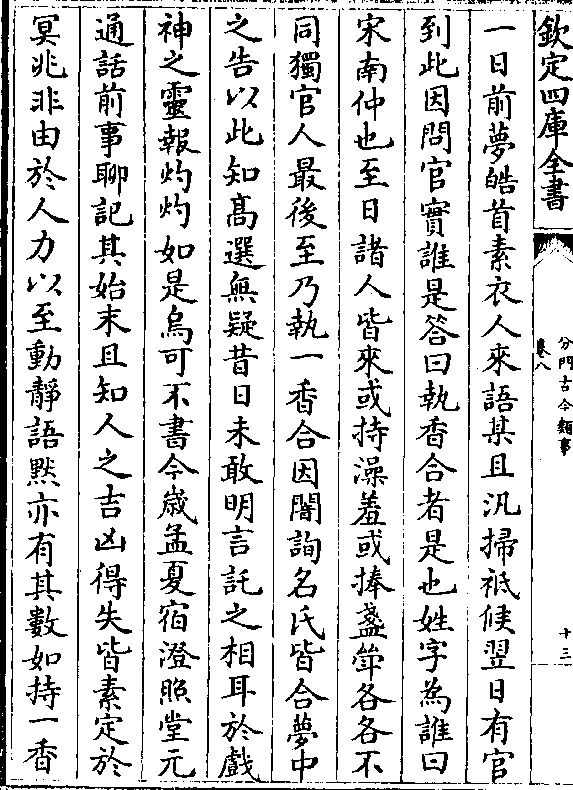 欽定四庫全書
分門古今類事
卷八
十三
一日前夢皓首素衣人來語某且汎掃祗候翌日有官
到此因問官實誰是答曰執香合者是也姓字為誰曰
宋南仲也至日諸人皆來或持澡羞或捧盞斝各各不
同獨官人最後至乃執一香合因闇詢名氏皆合夢中
之告以此知髙選無疑昔日未敢明言託之相耳於戲
神之靈報灼灼如是烏可不書今歲孟夏宿澄照堂元
通話前事聊記其始末且知人之吉凶得失皆素定於
冥兆非由於人力以至動靜語黙亦有其數如持一香